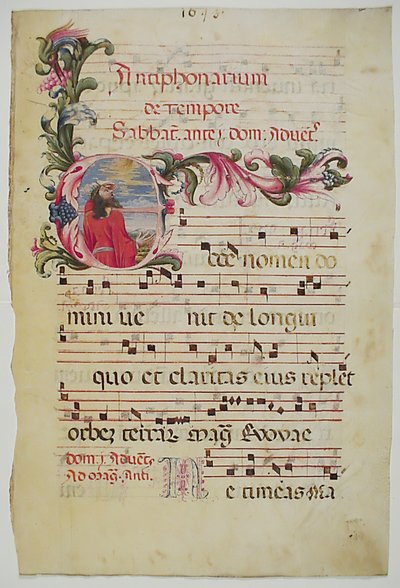 Antiphonarium
de tempore
Sabbat. ante j dom: Advet?
Ecce nomen do
mini ve nit de longin
quo et claritas eius replet
orbez terrar Mag Evovae
dom: j. Advet?
Ad Mag. Anti.
Ne timeas Ma